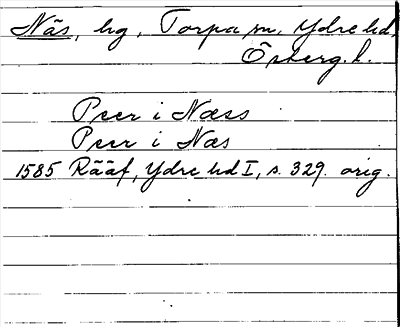 Näs, hg, Torpa sn, Ydre hd,
Österg. l.
Peer i Næss
Peer i Næs
1585 Rääf, Ydre hd I, s. 329. orig.